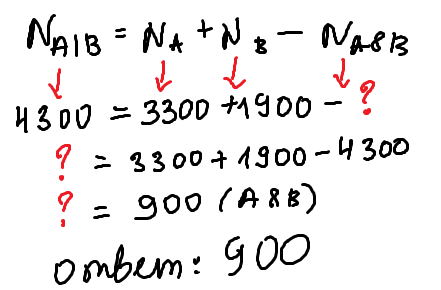 N A|B = N A + N B - N A&B
4300 = 3300 + 1900 - ?
? = 3300 + 1900 - 4300
? = 900 (A&B)
ответ: 900